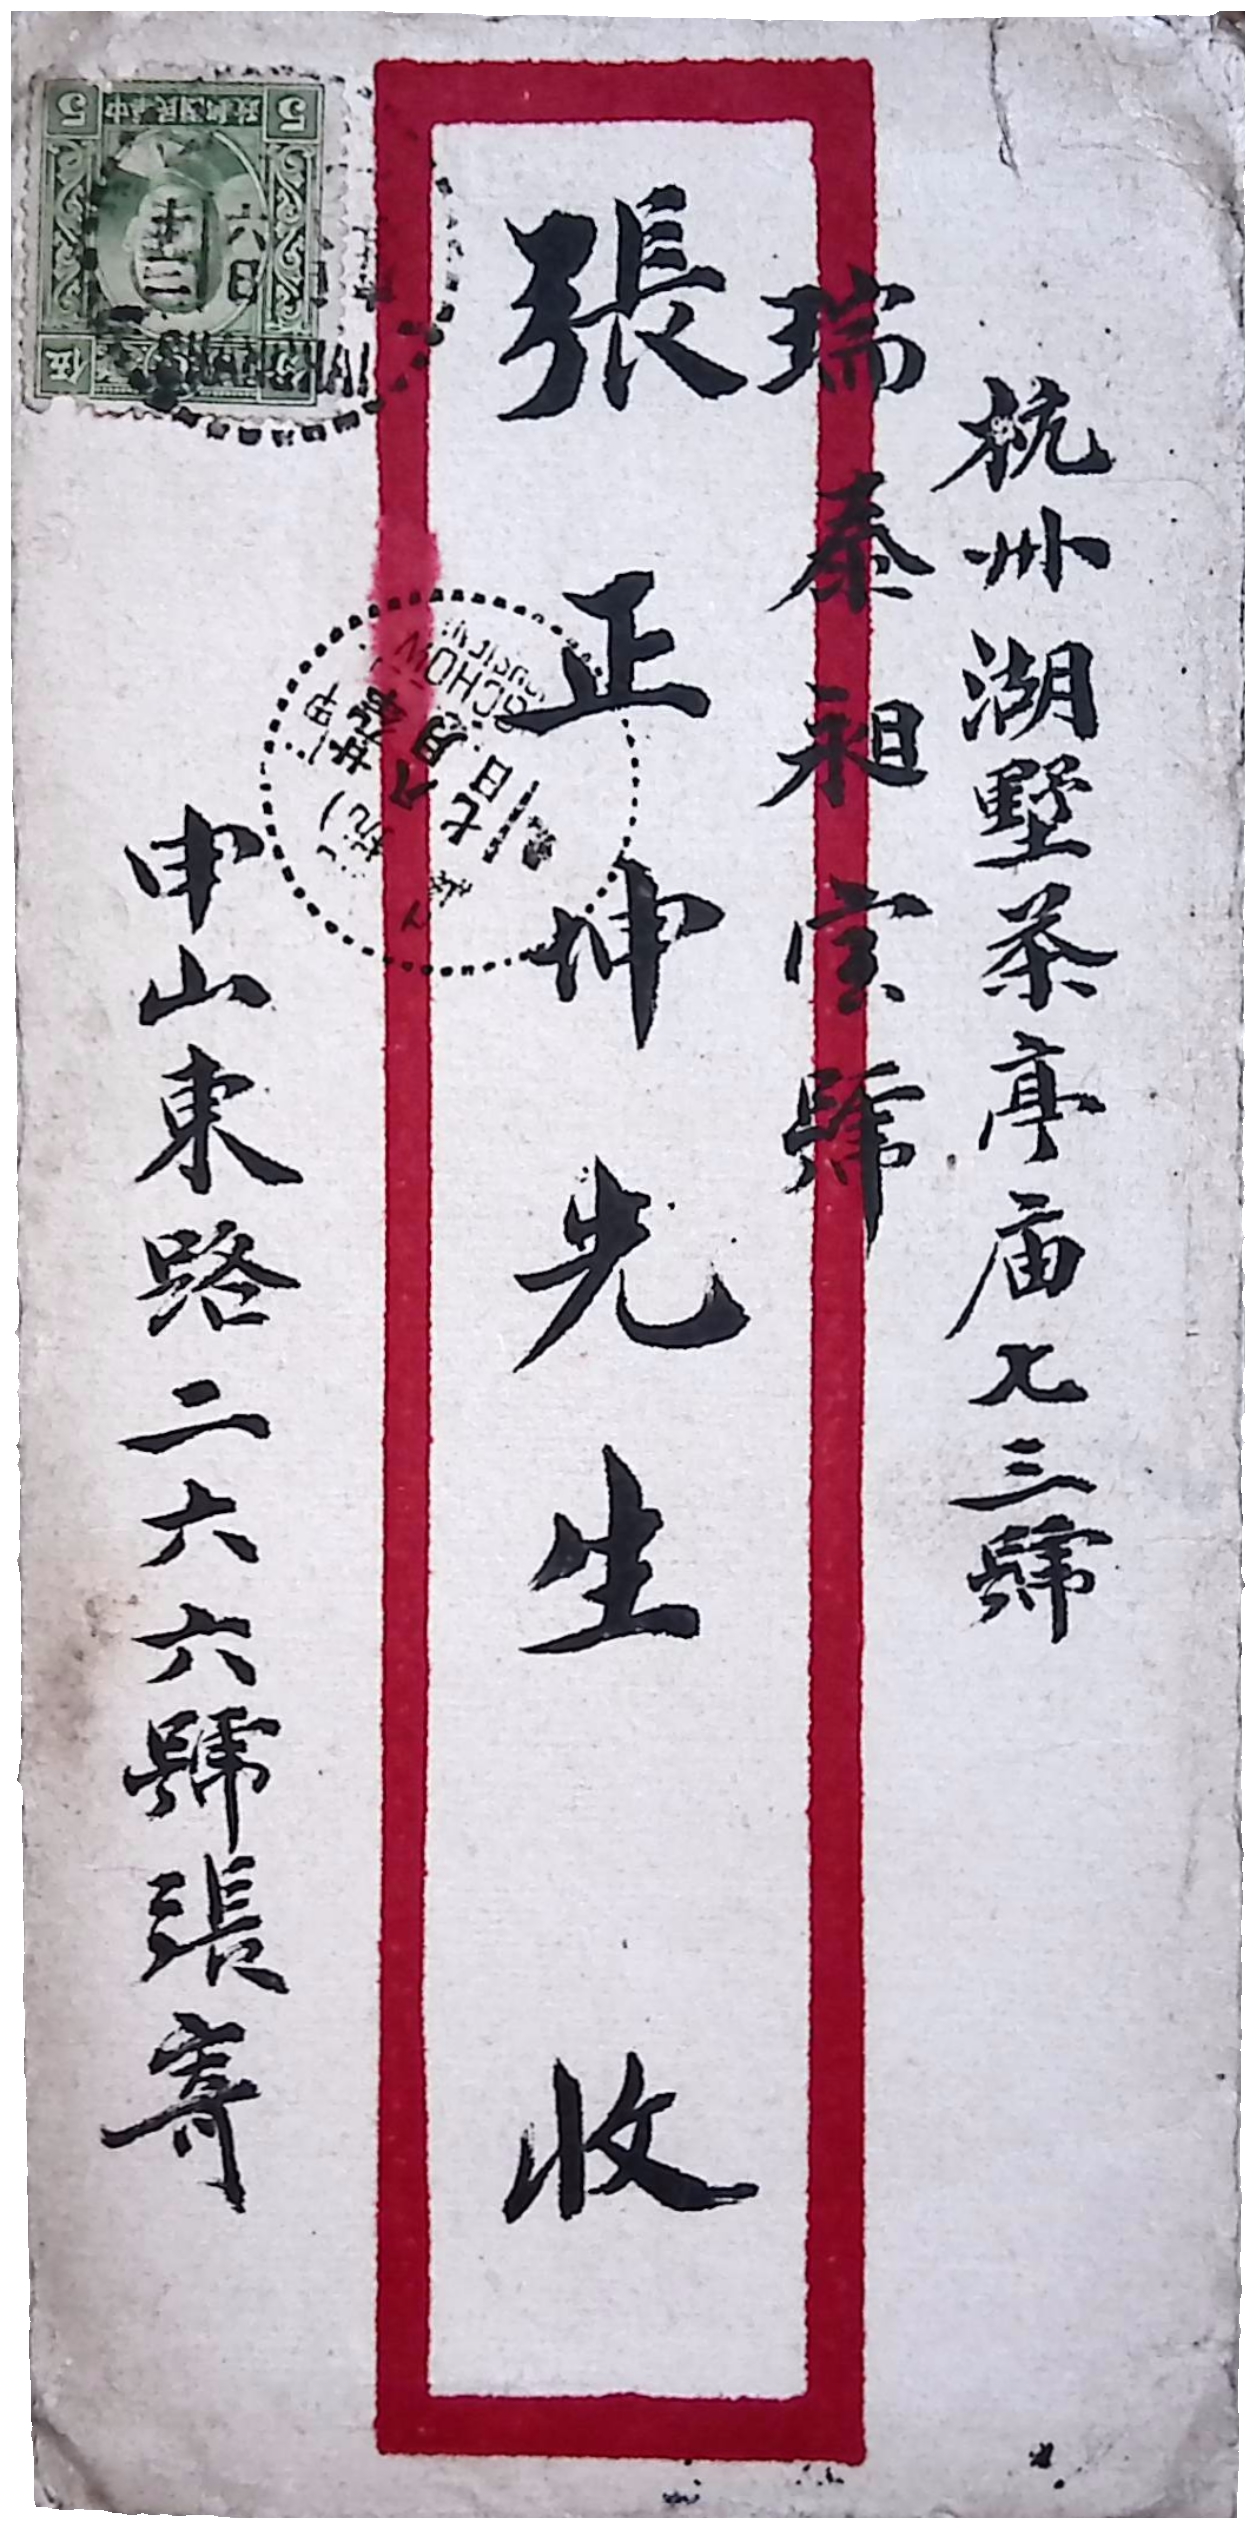 杭州湖墅茶亭庙七三號
瑞泰昶宝號
張正坤先生 收
申山東路二六六號張寄
中華民國郵政
5 5
伍 分
六日
七日
HANGCHOW